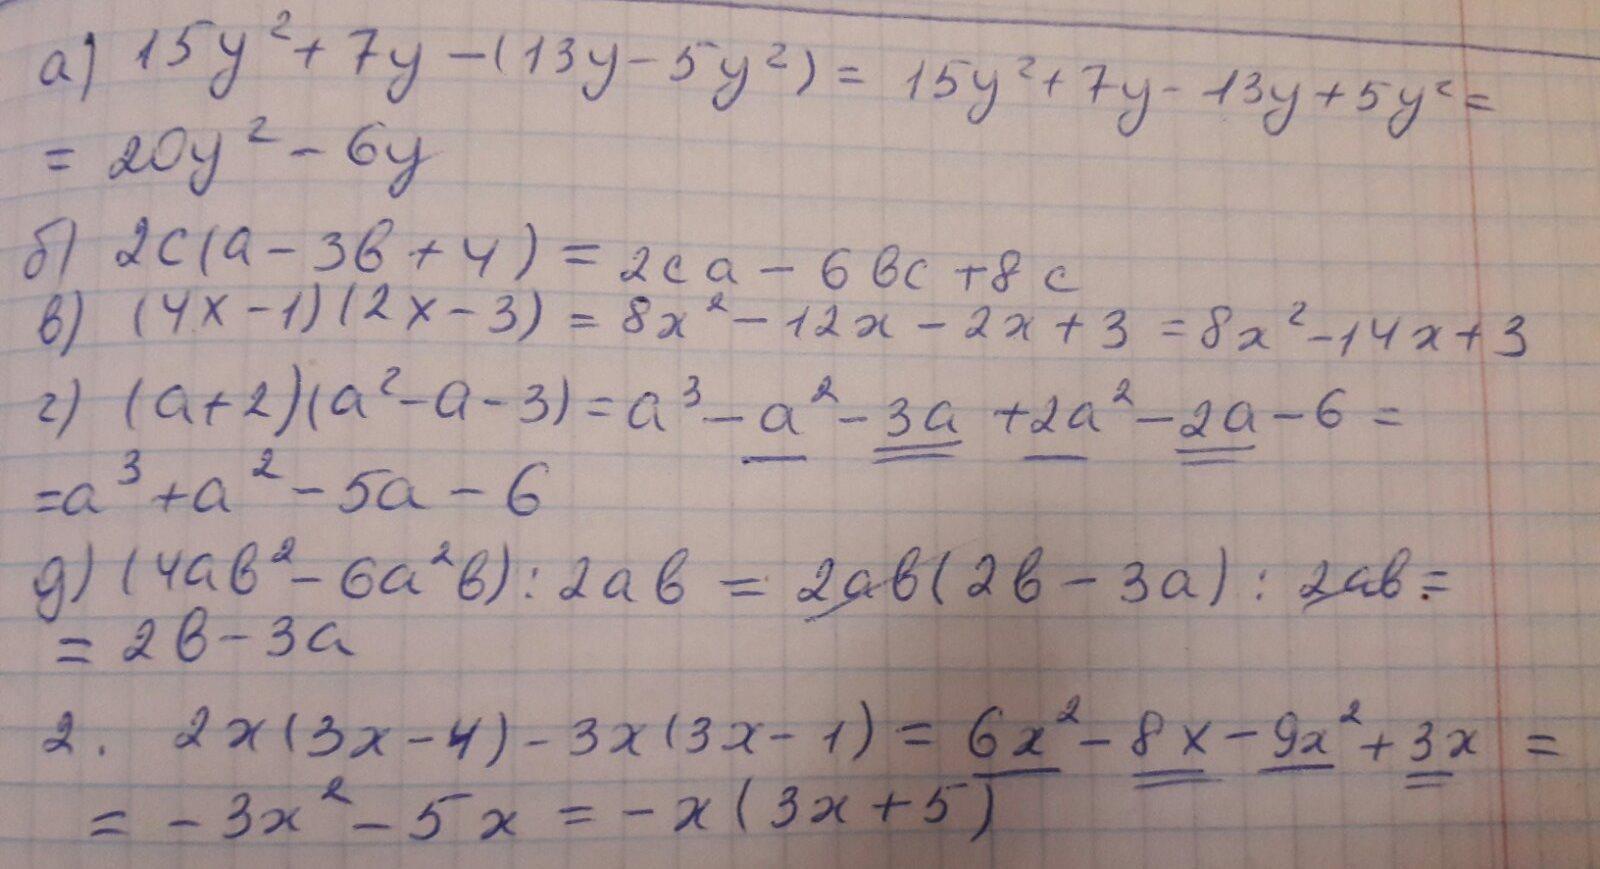 а) 15y² + 7y - (13y - 5y²) = 15y² + 7y - 13y + 5y² =
= 20y² - 6y
б) 2c(a - 3b + 4) = 2ca - 6bc + 8c
в) (4x - 1)(2x - 3) = 8x² - 12x - 2x + 3 = 8x² - 14x + 3
г) (a + 2)(a² - a - 3) = a³ - a² - 3a + 2a² - 2a - 6 =
= a³ + a² - 5a - 6
д) (4ab² - 6a²b) : 2ab = 2ab(2b - 3a) : 2ab =
= 2b - 3a
2. 2x(3x - 4) - 3x(3x - 1) = 6x² - 8x - 9x² + 3x =
= -3x² - 5x = -x(3x + 5)